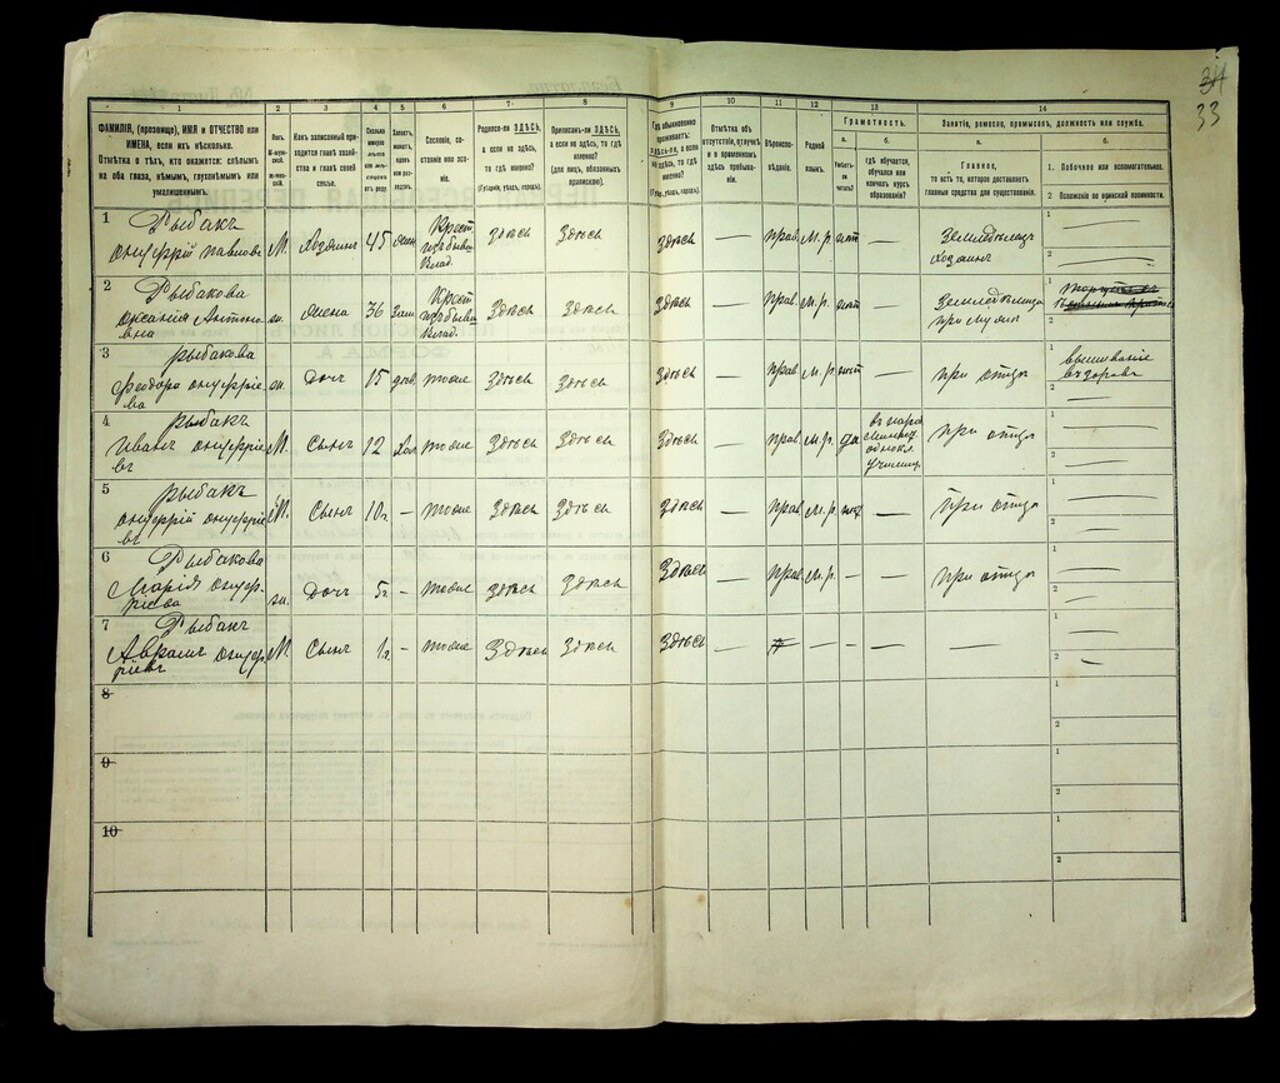 34
33
1 2 3 4 5 6 7 8 9 10 11 12 13 14
ФАМИЛІЯ, (прозвище), ИМЯ и ОТЧЕСТВО или
ИМЕНА, если ихъ нѣсколько.
Отмѣтка о тѣхъ, кто окажется: слѣпымъ
на оба глаза, нѣмымъ, глухонѣмымъ или
умалишеннымъ.
Полъ.
М-муж-
ской.
Ж-жен-
скій.
Какъ записанный при-
ходится главѣ хозяй-
ства и главѣ своей
семьи.
Сколько
минуло
лѣтъ
или мѣ-
сяцевъ
отъ роду
Холостъ,
женатъ,
вдовъ
или раз-
веденъ.
Сословіе, со-
стояніе или зва-
ніе.
Родился-ли ЗДѢСЬ,
а если не здѣсь,
то гдѣ именно?
(Губернія, уѣздъ, городъ).
Приписанъ-ли ЗДѢСЬ,
а если не здѣсь, то гдѣ
именно?
(для лицъ, обязанныхъ
припискою).
Гдѣ обыкновенно
проживаетъ:
здѣсь-ли, а если
не здѣсь, то гдѣ
именно?
(Губ., уѣздъ, городъ).
Отмѣтка объ
отсутствіи, отлучкѣ
и о временномъ
здѣсь пребыва-
ніи.
Вѣроиспо-
вѣданіе.
Родной
языкъ.
Грамотность.
а.
Умѣетъ-
ли
читать?
б.
гдѣ обучается,
обучался или
кончилъ курсъ
образованія?
Занятіе, ремесло, промыселъ, должность или служба.
а.
Главное,
то есть то, которое доставляетъ
главныя средства для существованія.
б.
1. Побочное или вспомогательное.
2. Положеніе по воинской повинности.
1 Рыбакъ
онуфрій павловъ М. Хозяинъ 45 жен Крест. изъ бывш. влад. здѣсь Здѣсь Здѣсь — прав. М.р. нѣт — Земледѣлецъ Хозяинъ 1 — 2 —
2 Рыбакова
оксанія Антоно-
вна ж. жена 36 Зам Крест изъ бывш влад. Здѣсь Здѣсь Здѣсь — прав. М.р. нѣт — Земледѣлица при мужѣ 1 2
3 рыбакова
феодора онуфріе-
ва ж. Дочь 15 дѣв тоже Здѣсь Здѣсь Здѣсь — прав М.р. нѣт — при отцѣ 1 вышиваніе 2 —
4 рыбакъ
Иванъ онуфріе-
въ М. Сынъ 12 Хол тоже Здѣсь Здѣсь Здѣсь — прав. М.р. да однокл. училищ. при отцѣ 1 — 2 —
5 рыбакъ
онуфрій онуфріе
въ М. Сынъ 10 г. — тоже Здѣсь Здѣсь Здѣсь — прав. М.р. нѣт — при отцѣ 1 — 2 —
6 Рыбакова
Марія онуф-
ріева ж. Дочь 5 г. — тоже здѣсь Здѣсь Здѣсь — прав. М.р. — — при отцѣ 1 — 2 —
7 Рыбакъ
Авраамъ онуф
ріевъ М. Сынъ 1 г. — тоже Здѣсь Здѣсь Здѣсь — — — — — 1 — 2 —
8 1 2
9 1 2
10 1 2